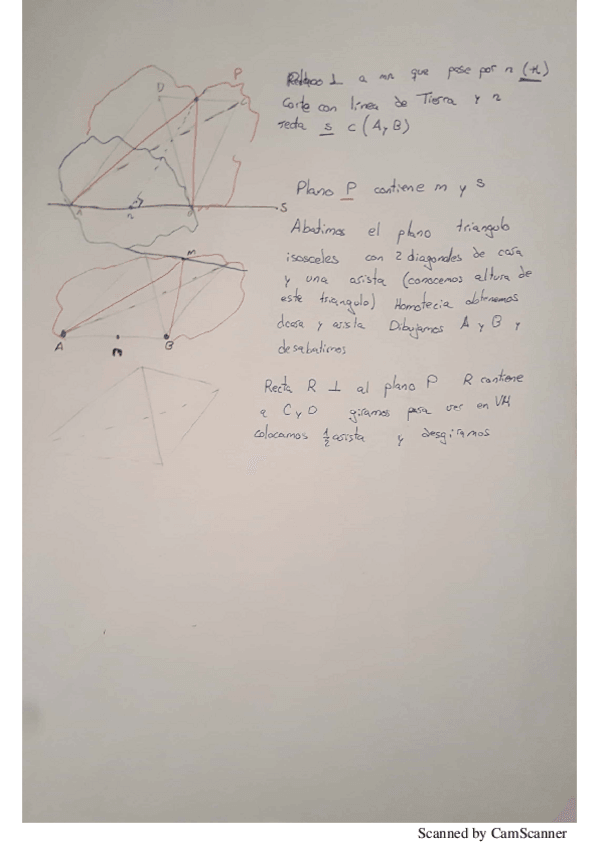 D
P
⊥ a mn que pase por n (π)
Corte con línea de Tierra y n
recta s c (A y B)
A
n
B
S
Plano P contiene m y s
Abatimos el plano triangulo
isosceles con 2 diagonales de cara
y una arista (conocemos altura de
este triangulo) Homotecia obtenemos
dcara y arista Dibujamos A y B y
desabatimos
M
A
m
B
Recta R ⊥ al plano P R contiene
a C y D giramos para ver en VM
colocamos ½ arista y desgiramos
Scanned by CamScanner